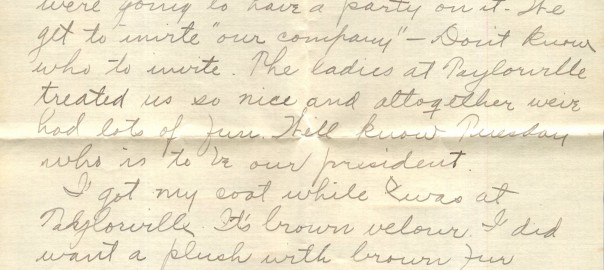 were going to have a party on it. We
get to invite "our company" - Don't know
who to invite. The ladies at Taylorville
treated us so nice and altogether we've
had lots of fun. We'll know Tuesday
who is to be our president.
I got my coat while I was at
Taylorville. It's brown velour. I did
want a plush with brown fur